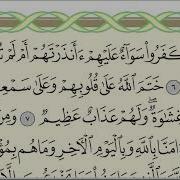 كَفَرُوا۟ سَوَآءٌ عَلَيْهِمْ ءَأَنذَرْتَهُمْ أَمْ لَمْ
٦ خَتَمَ ٱللَّهُ عَلَىٰ قُلُوبِهِمْ وَعَلَىٰ سَمْعِهِ
غِشَـٰوَةٌۖ وَلَهُمْ عَذَابٌ عَظِيمٌ ٧ وَمِنَ
ءَامَنَّا بِٱللَّهِ وَبِٱلْيَوْمِ ٱلْـَٔاخِرِ وَمَا هُم بِمُؤْ